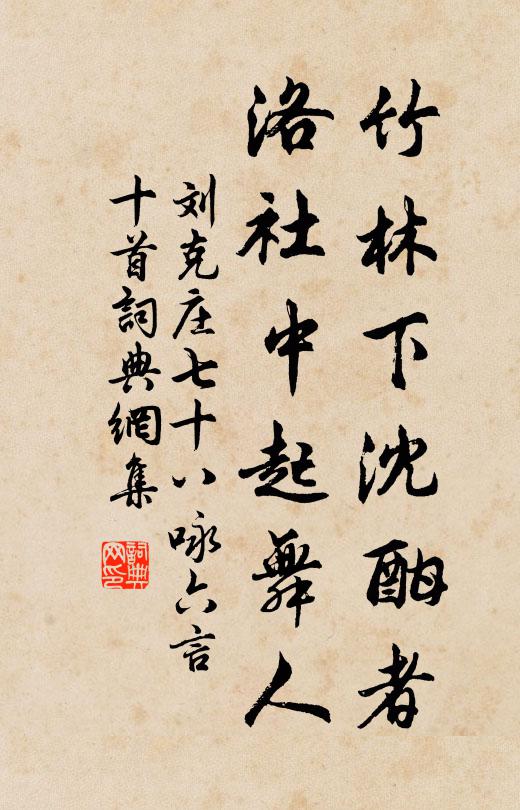 竹林下沈酣者
洛社中起舞人
刘克庄七十八咏六言
十首詞典網集
詞典網印